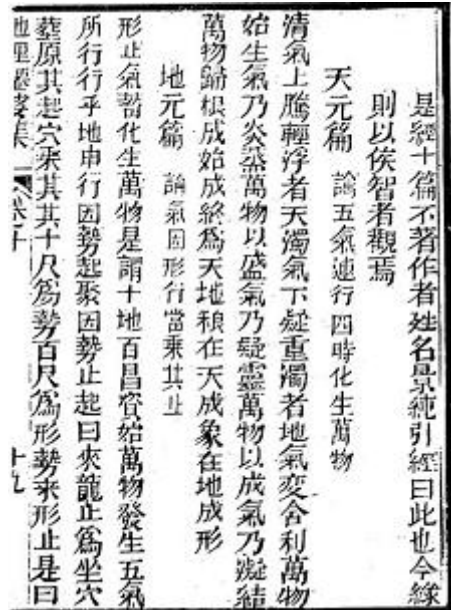 是經十篇不著作者姓名景純引經曰此也今緣
則以俟智者觀焉
天元篇 論五氣運行四時化生萬物
清氣上騰輕浮者天濁氣下疑重濁者地氣変合利萬物
始生氣乃炎蒸萬物以盛氣乃疑靈萬物以成氣乃凝結
萬物歸根成始成終爲天地根在天成象在地成形
地元篇 論氣因形行當乗其止
形止氣蓄化生萬物是謂十地百昌資始萬物發生五氣
所行行乎地申行因勢起聚因勢止起曰來龍止爲坐穴
葬原其起穴乘其其十尺爲勢百尺爲形勢來形止是曰
地理 集 卷十 十九